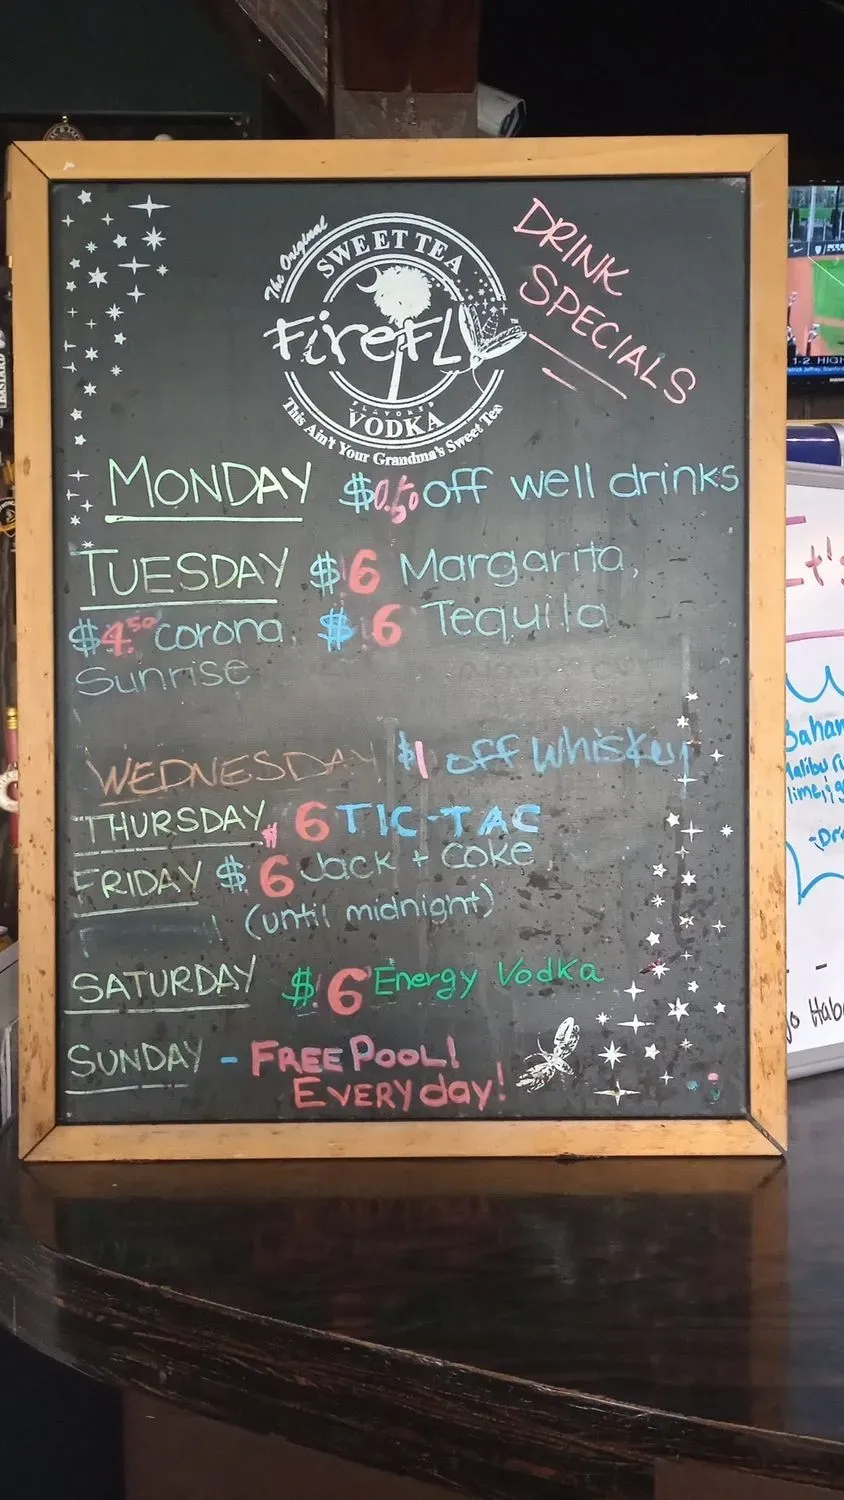 The Original
SWEET TEA
FireFLy
FLAVORED
VODKA
This Ain't Your Grandma's Sweet Tea
DRINK
SPECIALS
MONDAY $0.50 off well drinks
TUESDAY $6 Margarita,
$4.50 corona, $6 Tequila
Sunrise
WEDNESDAY $1 off whiskey
THURSDAY $6 TIC-TAC
FRIDAY $6 Jack + Coke
(until midnight)
SATURDAY $6 Energy Vodka
SUNDAY - FREE POOL!
EVERYday!
BASTARD
1-2. HIGH
Malibu